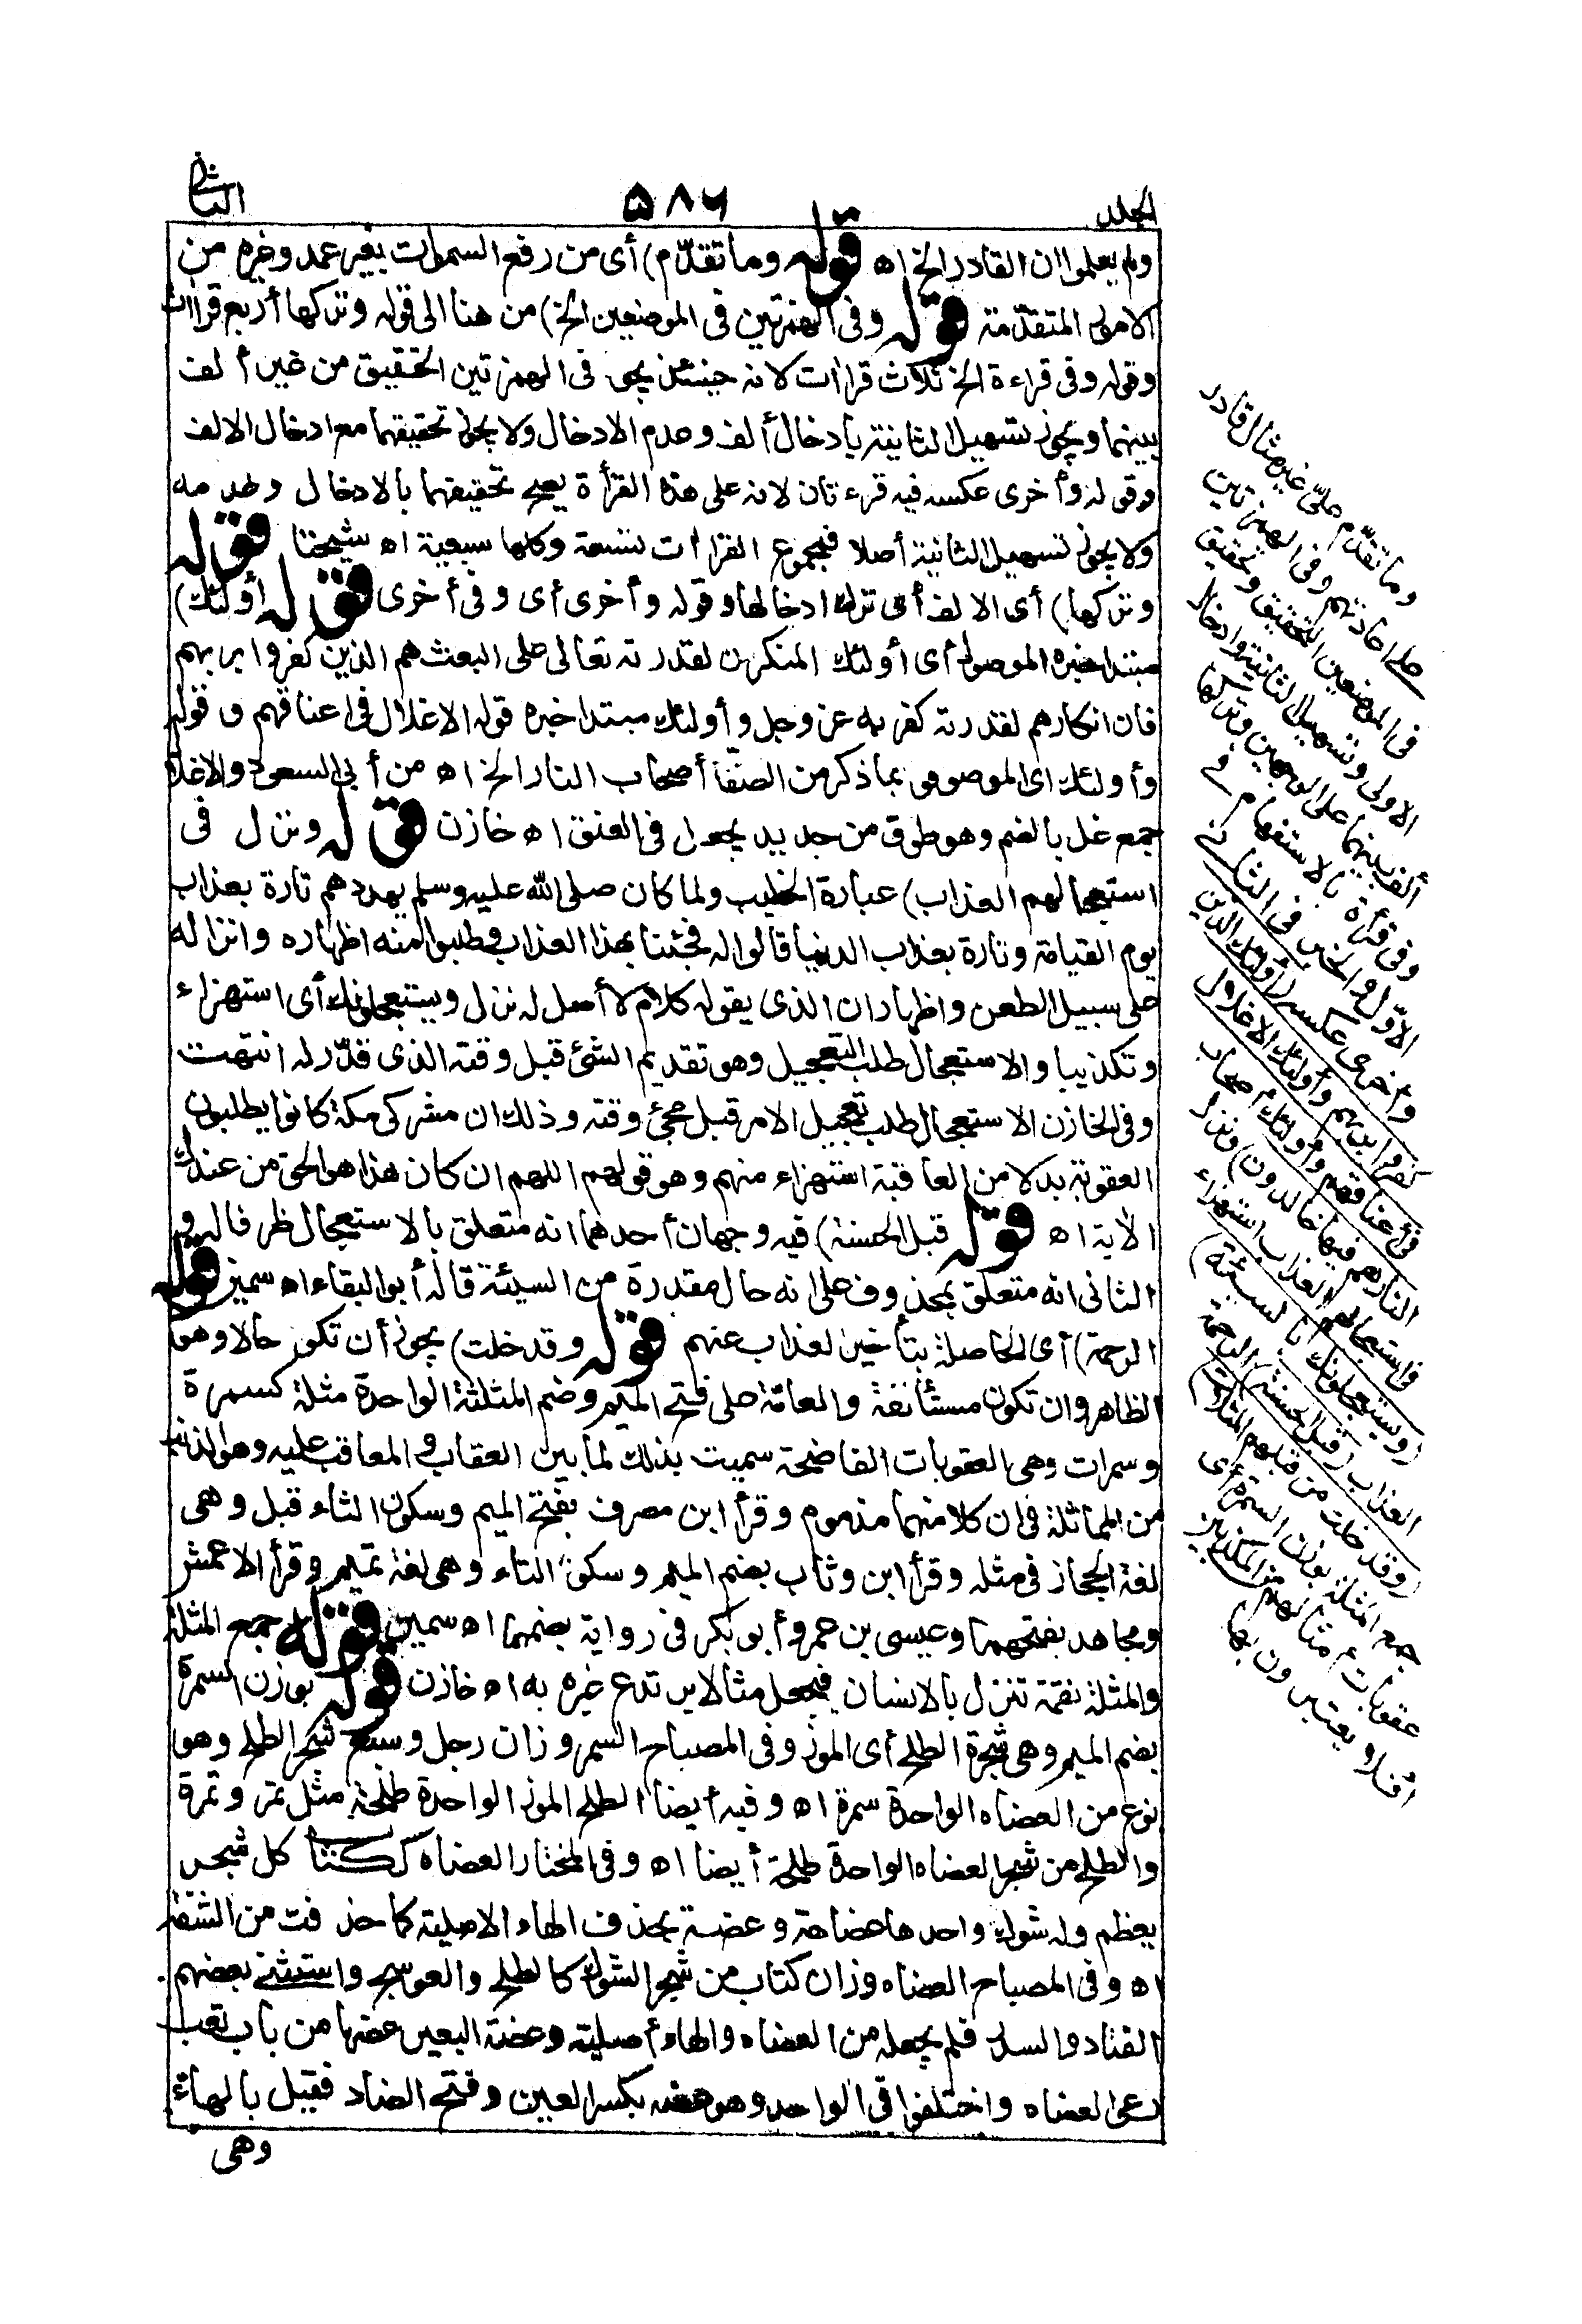 الجلد
٥٨٦
الثاني
ولم يعلموا ان القادر الخ اه قوله وما تقدّم) أى من رفع السموات بغير عمد وغيره من
الامور المتقدّمة قوله وفى الهمزتين فى الموضعين الخ) من هنا الى قوله وتركها أربع قراات
وقوله وفى قراءة الخ ثلاث قراات لانه حينئذ يجوز فى الهمزتين التحقيق من غير ألف
بينهما ويجوز تسهيل الثانية بادخال ألف وعدم الادخال ولا يجوز تحقيقهما مع ادخال الالف
وقوله وأخرى عكسه فيه قرءتان لانه على هذه القرأة يصح تحقيقهما بالادخال وعدمه
ولا يجوز تسهيل الثانية أصلا فمجموع القراات تسعة وكلها سبعية اه شيخنا قوله
وتركها) أى الالف أى ترك ادخالها وقوله وأخرى أى وفى أخرى قوله (أولئك)
مبتدا خبره الموصول أى أولئك المنكرون لقدرته تعالى على البعث هم الذين كفروا بربهم
فان انكارهم لقدرته كفر به عز وجل وأولئك مبتدا خبره قوله الاغلال فى اعناقهم و قوله
وأولئك اى الموصوفون بما ذكر من الصفا أصحاب النار الخ اه من أبى السعود والاغلال
جمع غل بالضم وهو طوق من حديد يجعل فى العنق اه خازن قوله ونزل فى
استعجالهم العذاب) عبارة الخطيب ولما كان صلى الله عليه وسلم يهددهم تارة بعذاب
يوم القيامة وتارة بعذاب الدنيا قالوا له فجئنا بهذا العذاب وطلبوا منه اظهاره وانزاله
على سبيل الطعن واظهار ان الذى يقوله كلام لا أصل له نزل ويستعجلونك أى استهزاء
وتكذيبا والاستعجال طلب التعجيل وهو تقديم الشئ قبل وقته الذى قدّر له انتهت
وفى الخازن الاستعجال طلب تعجيل الامر قبل مجئ وقته وذلك ان مشركى مكة كانوا يطلبون
العقوبة بدلا من العافية استهزاء منهم وهو قولهم اللهم ان كان هذا هو الحق من عندك
الأية اه قوله قبل الحسنة) فيه وجهان أحدهما انه متعلق بالاستعجال ظرفا له و
الثانى انه متعلق بمحذوف على انه حال مقدرة من السيئة قاله أبو البقاء اه سمين قوله
الرحمة) أى الحاصلة بتأخير العذاب عنهم قوله وقد خلت) يجوز أن تكون حالا وهو
الظاهر وان تكون مستأنفة والعامّة على فتح الميم وضم المثلثة الواحدة مثلة كسمرة
وسمرات وهى العقوبات الفاضحة سميت بذلك لما بين العقاب و المعاقب عليه وهو الذنب
من المماثلة فى ان كلا منهما مذموم وقرأ ابن مصرف بفتح الميم وسكون الثاء قبل وهى
لغة الحجاز فى مثله وقرأ ابن وثاب بضم الميم وسكون الثاء وهى لغة تميم وقرأ الاعمش
ومجاهد بفتحهما وعيسى بن عمرو أبو بكر فى رواية بضمهما اه سمين قوله جمع المثلة
والمثلة نقمة تنزل بالانسان فيجعل مثالا يرتدع غيره به اه خازن قوله بوزن السمرة
بضم الميم وهى شجرة الطلح أى الموز وفى المصباح السمر وزان رجل وسبع شجر الطلح وهو
نوع من العضاه الواحدة سمرة اه وفيه أيضا الطلح الموز الواحدة طلحة مثل تمر وتمرة
والطلح من شجر العضاه الواحدة طلحة أيضا اه وفى المختار العضاه ككتاب كل شجر
يعظم وله شوك واحدها عضاهة وعضة بحذف الهاء الاصلية كما حذفت من الشفة
اه وفى المصباح العضاه وزان كتاب من شجر الشوك كالطلح والعوسج واستثنى بعضهم
القتاد والسدر فلم يجعله من العضاه والهاء أصلية وعضة البعير عضها من باب تعب
رعى العضاه واختلفوا فى الواحد وهو عضه بكسر العين وفتح الضاد فقيل بالهاء
وهى
وما تقدّم على غير مثال قادر
على اعادتهم وفى الهمزتين
فى الموضعين التحقيق وتحقيق
الاولى وتسهيل الثانية وادخال
ألف بينهما على الوجهين وتركها
وفى قرأة بالاستفهام فى
الاوّل والخبر فى الثانى
وأخرى عكسه (أولئك الذين
كفروا بربهم وأولئك الاغلال
فى أعناقهم وأولئك أصحاب
النار هم فيها خالدون) ونزل
فى استعجالهم العذاب استهزاء
(ويستعجلونك بالسيئة)
العذاب (قبل الحسنة) الرحمة
(وقد خلت من قبلهم المثلات)
جمع المثلة بوزن السمرة أى
عقوبات أمثالهم من المكذبين
أفلا يعتبرون بها